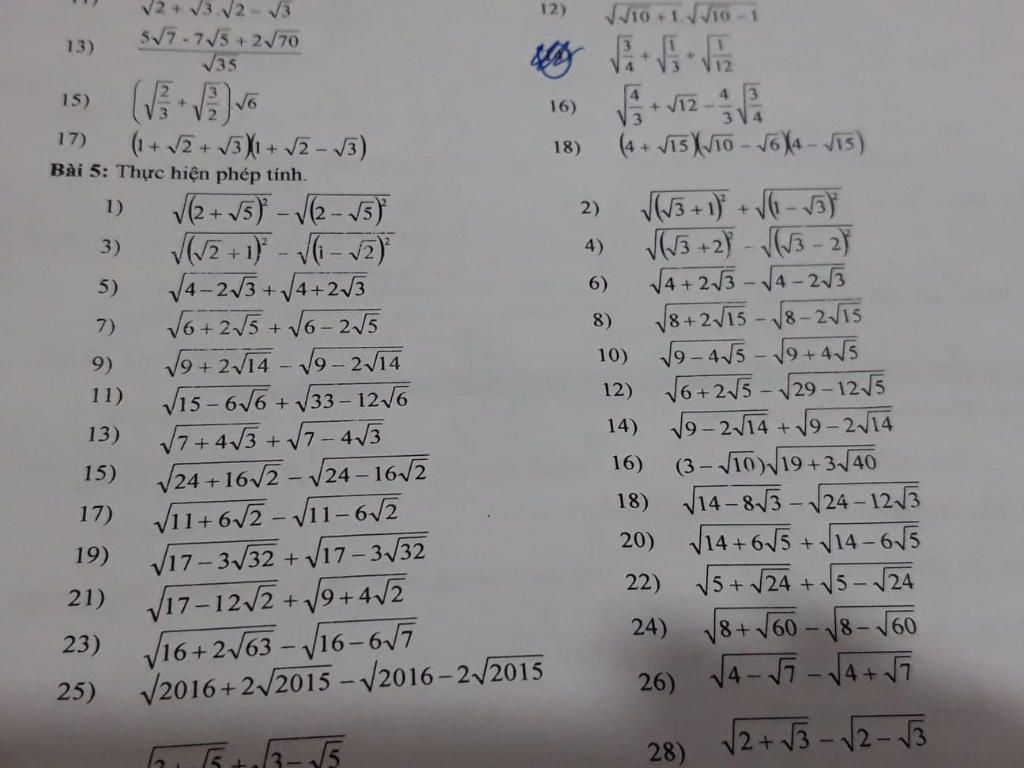 √2 + √3.√2 − √3
12) √(√10 + 1).√(√10 − 1)
13) (5√7 - 7√5 + 2√70)/√35
√(3/4) + √(1/3) + √(1/12)
15) (√(2/3) + √(3/2))√6
16) √(4/3) + √12 − (4/3)√(3/4)
17) (1 + √2 + √3)(1 + √2 − √3)
18) (4 + √15)(√10 − √6)(4 − √15)
Bài 5: Thực hiện phép tính.
1) √((2 + √5)²) − √((2 − √5)²)
2) √((√3 + 1)²) + √((1 − √3)²)
3) √((√2 + 1)²) − √((1 − √2)²)
4) √((√3 + 2)²) − √((√3 − 2)²)
5) √(4 − 2√3) + √(4 + 2√3)
6) √(4 + 2√3) − √(4 − 2√3)
7) √(6 + 2√5) + √(6 − 2√5)
8) √(8 + 2√15) − √(8 − 2√15)
9) √(9 + 2√14) − √(9 − 2√14)
10) √(9 − 4√5) − √(9 + 4√5)
11) √(15 − 6√6) + √(33 − 12√6)
12) √(6 + 2√5) − √(29 − 12√5)
13) √(7 + 4√3) + √(7 − 4√3)
14) √(9 − 2√14) + √(9 − 2√14)
15) √(24 + 16√2) − √(24 − 16√2)
16) (3 − √10)√(19 + 3√40)
17) √(11 + 6√2) − √(11 − 6√2)
18) √(14 − 8√3) − √(24 − 12√3)
19) √(17 − 3√32) + √(17 − 3√32)
20) √(14 + 6√5) + √(14 − 6√5)
21) √(17 − 12√2) + √(9 + 4√2)
22) √(5 + √24) + √(5 − √24)
23) √(16 + 2√63) − √(16 − 6√7)
24) √(8 + √60) − √(8 − √60)
25) √(2016 + 2√2015) − √(2016 − 2√2015)
26) √(4 − √7) − √(4 + √7)
√5 + √(3 − √5)
28) √(2 + √3) − √(2 − √3)